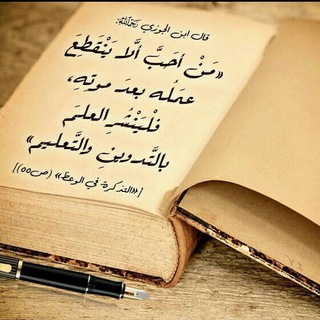 قال ابن الجوزي رَحِمَهُ اللَّهُ:
«مَنْ أحَبَّ ألَّا يَنْقَطِعَ
عملُه بعدَ موتِهِ،
فَلْيَنْشُرِ العلمَ
بالتَّدوينِ والتَّعليمِ»
[«التذكرة في الوعظ» (ص٥٥)]